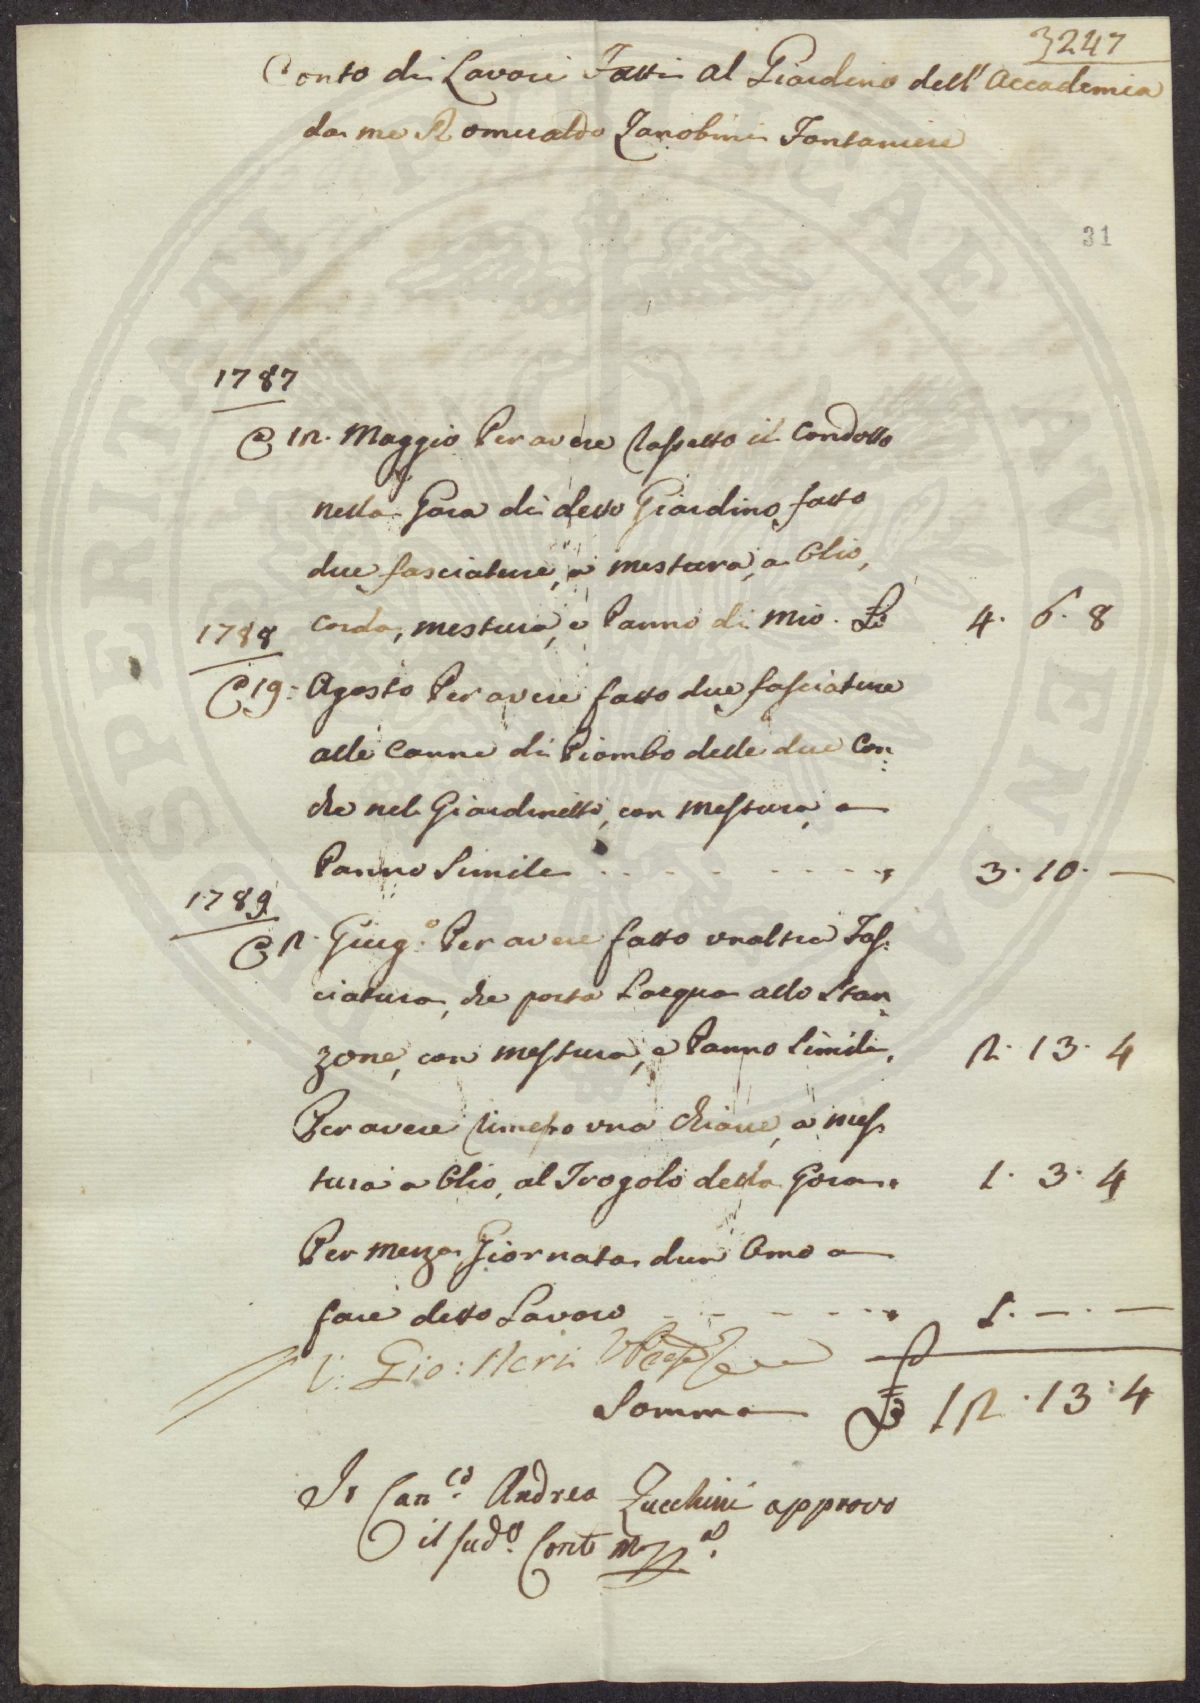 3247
Conto di Lavori Fatti al Giardino dell'Accademia
da me Romualdo Zanobini Fontaniere
31
1787
@ 12. Maggio Per avere Rassetto il Condotto
nella Gora di detto Giardino, fatto
due fasciature, a mestura, a Olio,
corda, mestura, e Panno di mio. £ 4. 6. 8
1788
@ 19: Agosto Per avere fatto due fasciature
alle Canne di Piombo delle due Con:
che nel Giardinetto, con mestura, e
Panno Simile - - - - - - - , 3. 10. —
1789
@ 2. Giug.o Per avere fatto unaltra Fas:
ciatura, che porta Lacqua allo Stan:
zone, con mestura, e Panno Simile, 2. 13. 4
Per avere Rimesso una chiave, a mes
tura a Olio, al Trogolo della Gora . 1. 3. 4
Per mezza Giornata dun Omo a
fare detto Lavoro - - - - - , 1. — . —
V: Gio: Neri
Somma £ 12. 13. 4
Io Can.co Andrea Zucchini approvo
il sud.o Conto